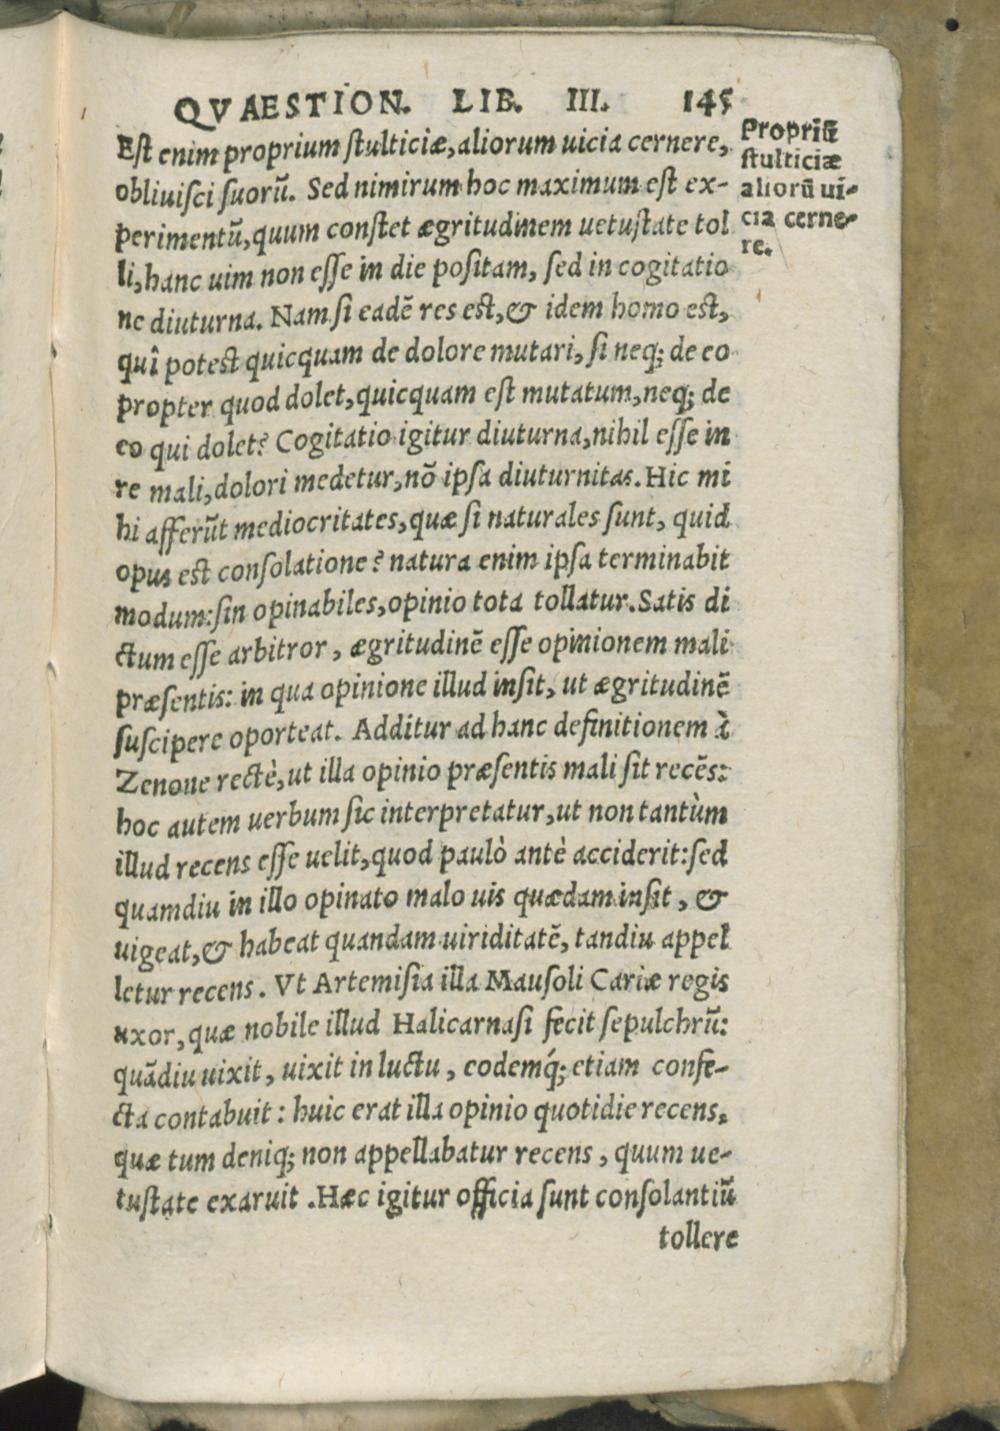 QVAESTION. LIB. III. 145
Est enim proprium stulticiæ, aliorum uicia cernere,
obliuisci suorũ. Sed nimirum hoc maximum est ex-
perimentũ, quum constet ægritudinem uetustate tol
li, hanc uim non esse in die positam, sed in cogitatio
ne diuturna. Nam si eadẽ res est, & idem homo est,
quî potest quicquam de dolore mutari, si neq; de eo
propter quod dolet, quicquam est mutatum, neq; de
eo qui dolet? Cogitatio igitur diuturna, nihil esse in
re mali, dolori medetur, nõ ipsa diuturnitas. Hic mi
hi afferũt mediocritates, quæ si naturales sunt, quid
opus est consolatione? natura enim ipsa terminabit
modum: sin opinabiles, opinio tota tollatur. Satis di
ctum esse arbitror, ægritudinẽ esse opinionem mali
præsentis: in qua opinione illud insit, ut ægritudinẽ
suscipere oporteat. Additur ad hanc definitionem à
Zenone rectè, ut illa opinio præsentis mali sit recẽs:
hoc autem uerbum sic interpretatur, ut non tantùm
illud recens esse uelit, quod paulò antè acciderit: sed
quamdiu in illo opinato malo uis quædam insit, &
uigeat, & habeat quandam uiriditatẽ, tandiu appel
letur recens. Vt Artemisia illa Mausoli Cariæ regis
uxor, quæ nobile illud Halicarnasi fecit sepulchrũ:
quãdiu uixit, uixit in luctu, eodemq́; etiam confe-
cta contabuit: huic erat illa opinio quotidie recens,
quæ tum deniq; non appellabatur recens, quum ue-
tustate exaruit. Hæc igitur officia sunt consolantiũ
tollere
Propriũ
stulticiæ
aliorũ ui-
cia cerne-
re.